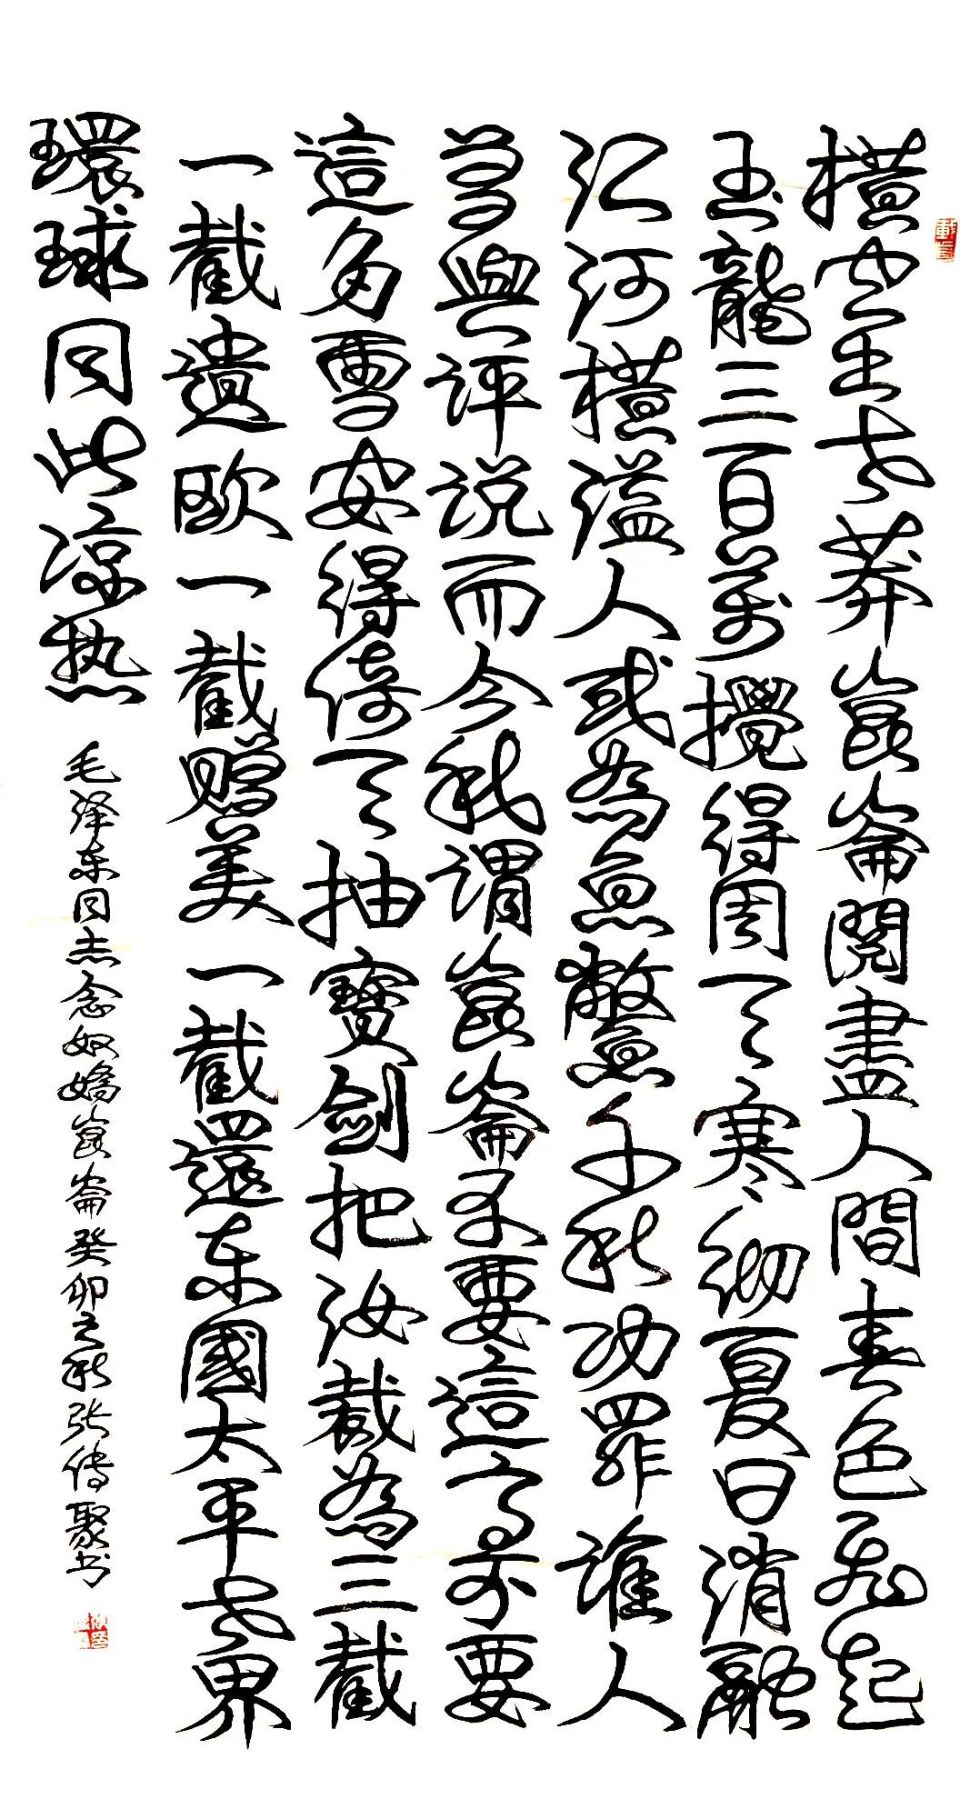 橫空出世莽崑崙閱盡人間春色飛起
玉龍三百萬攪得周天寒徹夏日消融
江河橫溢人或為魚鱉千秋功罪誰人
曾與評說而今我謂崑崙不要這高不要
這多雪安得倚天抽寶劍把汝裁為三截
一截遺歐一截贈美一截還东國太平世界
環球同此凉热
毛泽东同志念奴嬌崑崙癸卯之秋张传聚书